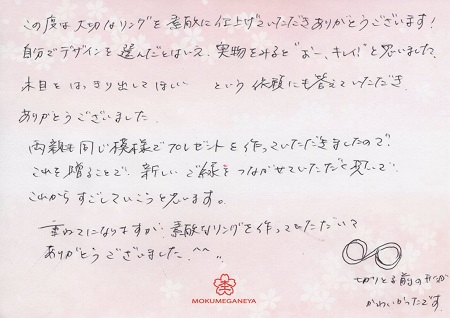 この度は大切なリングを素敵に仕上げていただきありがとうございます！
自分でデザインを選んだとはいえ、実物をみると"おー、キレイ！"と思いました。
木目をはっきり出してほしい　という依頼にも答えていただき
ありがとうございました。
両親も同じ模様でプレゼントを作っていただきましたので、
これを贈ることで、新しいご縁をつながせていただくと思いで
これからすごしていこうと思います。
重ねてになりますが、素敵なリングを作っていただいて
ありがとうございました。^^
切りとる前の形が
かわいかったです。
MOKUMEGANEYA